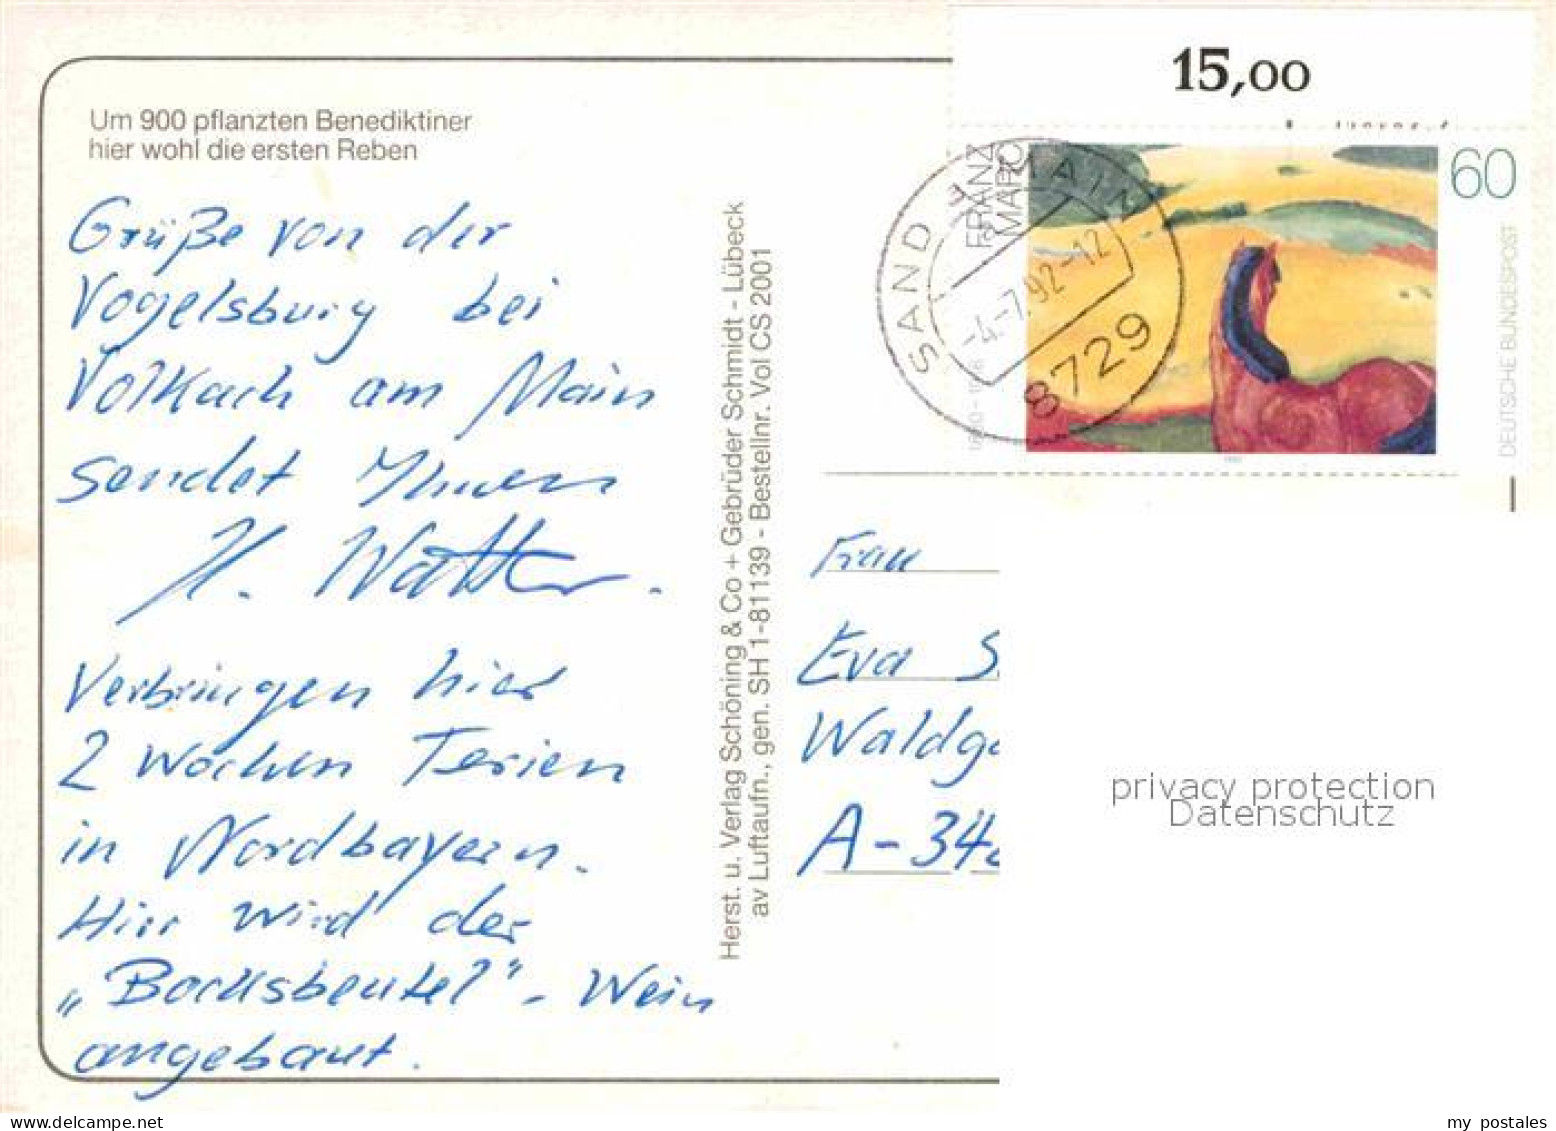 Um 900 pflanzten Benediktiner
hier wohl die ersten Reben
Grüße von der
Vogelsburg bei
Volkach am Main
sendet Ihnen
H. Walter.
Verbringen hier
2 Wochen Ferien
in Nordbayern.
Hier wird der
„Bocksbeutel" - Wein
angebaut.
Herst. u. Verlag Schöning & Co + Gebrüder Schmidt - Lübeck
av Luftaufn., gen. SH 1-81139 - Bestellnr. Vol CS 2001
15,00
FRANZ
MARC
60
DEUTSCHE BUNDESPOST
SAND MAIN
-4.-7.92-12
8729
Frau
Eva S
Waldg
A-34
privacy protection
Datenschutz
my postales